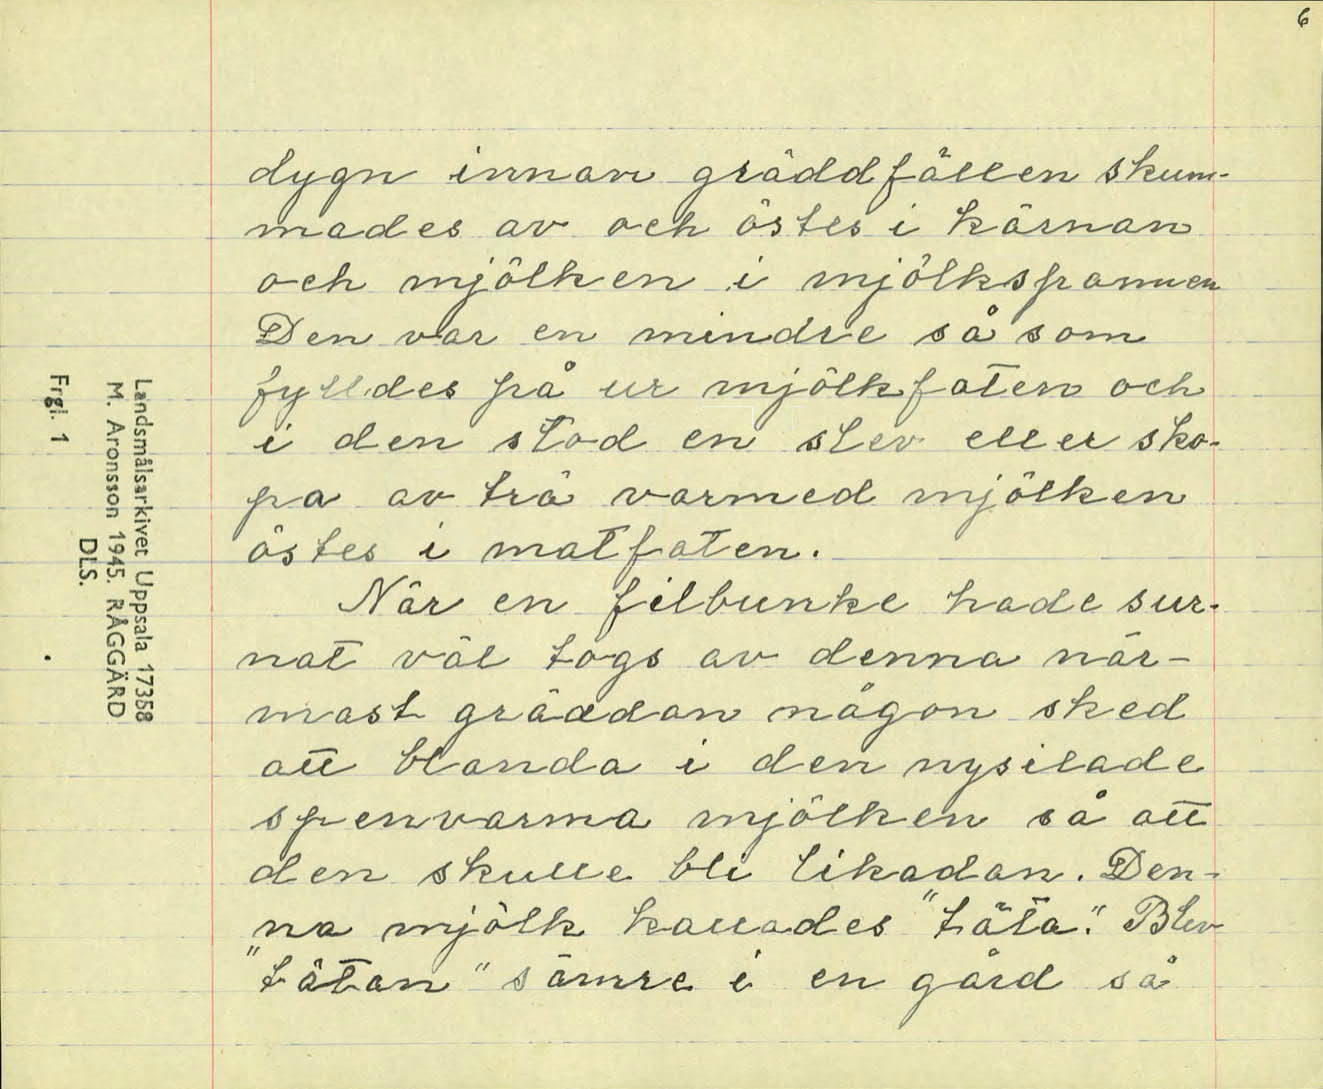 6
dygn innan gräddfällen skum-
mades av och östes i kärnan
och mjölken i mjölkspannen
Den var en mindre så som
fylldes på ur mjölkfaten och
i den stod en slev eller sko-
pa av trä varmed mjölken
östes i matfaten.
När en filbunke hade sur-
nat väl togs av denna när-
mast gräddan någon sked
att blanda i den nysilade
spenvarma mjölken så att
den skulle bli likadan. Den-
na mjölk kallades "täta". Blev
"tätan" sämre i en gård så
Landsmålsarkivet Uppsala 17358
M. Aronsson 1945. RÅGGÄRD
DLS.
Frgl. 1